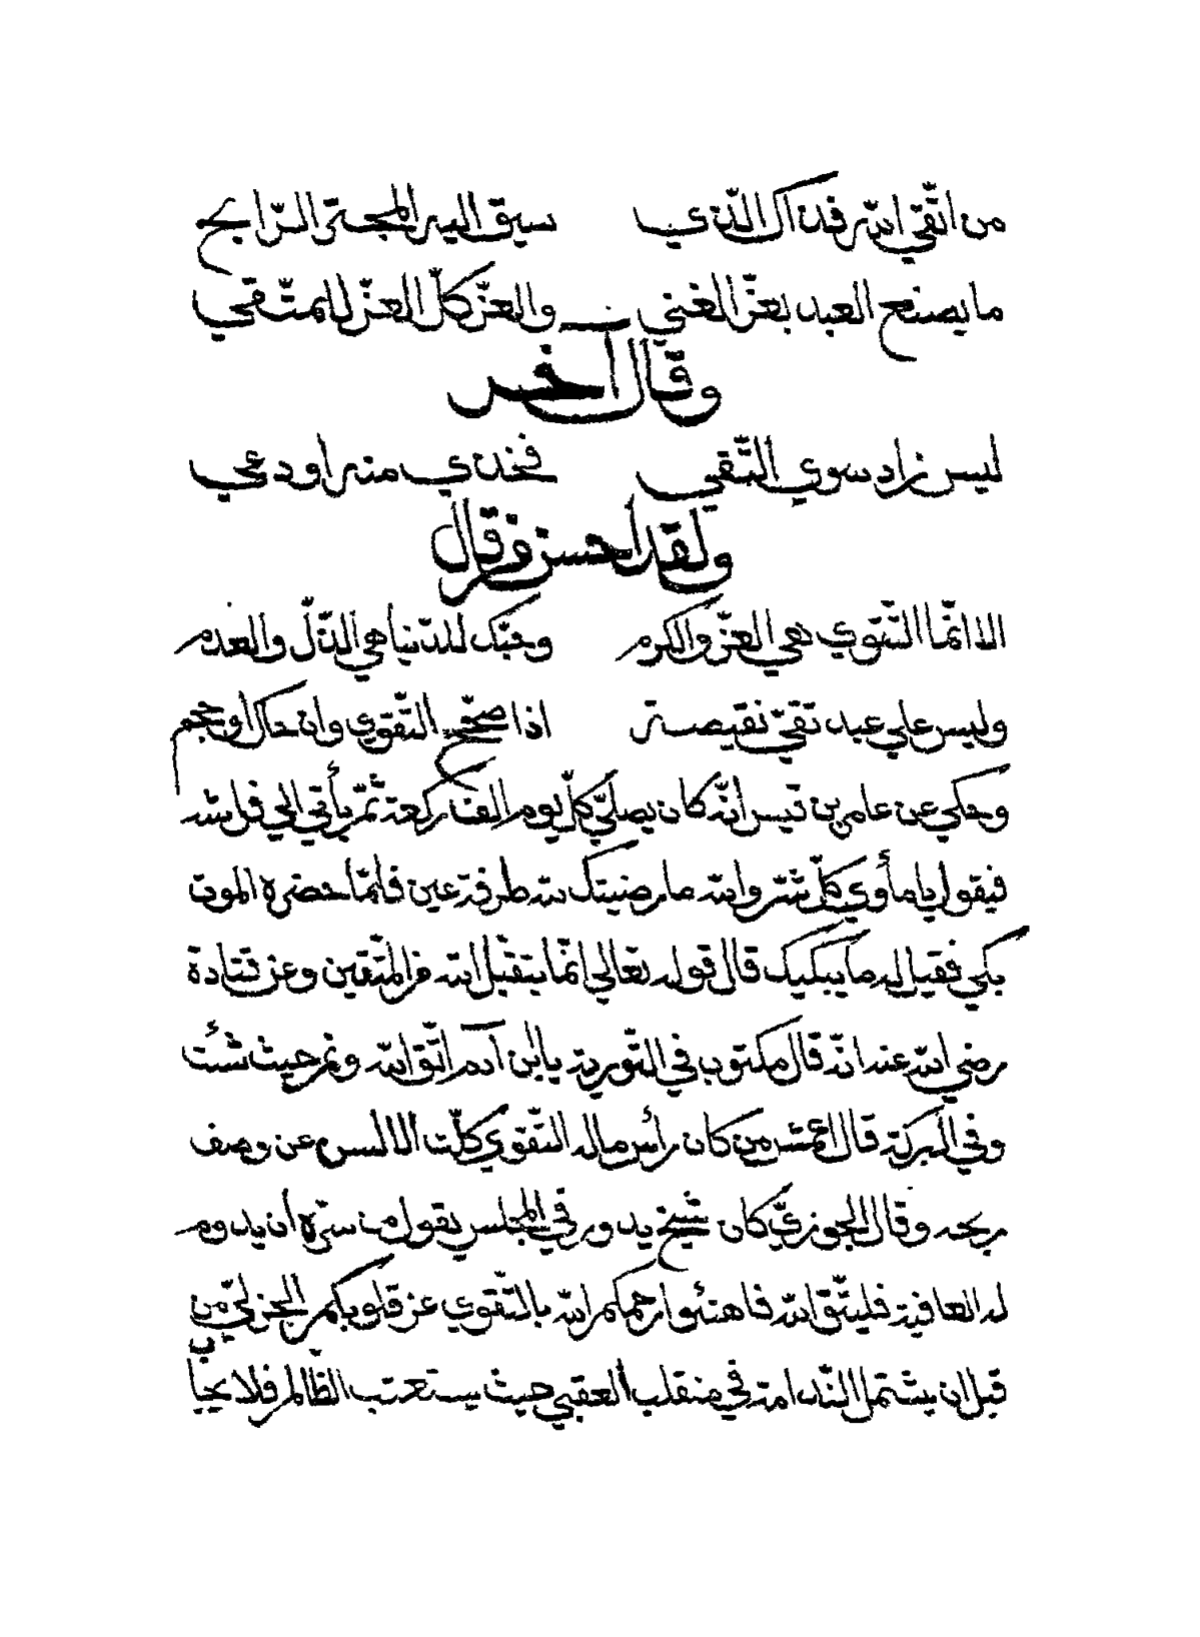 من اتّقي اللّه فذاك الّذي سيق اليه المجتي الرّابح
ما يصنع العبد بعزّ الغني والعزّ كلّ العزّ للمتّقي
وقال آخر
ليس زاد سوي التّقي فخذي منه اودعي
ولقد أحسن من قال
الا انّما التّقوي هي العزّ والكرم وحبّك للدّنيا هي الذّلّ والعدم
وليس علي عبد تقيّ نقيصة اذا صحّح التّقوي وان حاك أو حجم
وحكي عن عامر بن قيس انّه كان يصلّي كلّ يوم الف ركعة ثمّ يأتي الي فراشه
فيقول يا مأوي كلّ شرّ واللّه ما رضيتك للّه طرفة عين فلمّا حضره الموت
بكي فقيل له ما يبكيك قال قوله تعالي انّما يتقبّل اللّه من المتّقين وعن قتادة
رضي اللّه عنه انّه قال مكتوب في التّورية يا ابن آدم اتّق اللّه ونم حيث شئت
وفي البركة قال اعمش من كان رأس ماله التّقوي كلّت الالسن عن وصف
ربحه وقال الجوزيّ كان شيخ يدور في المجلس يقول من سرّه أن يدوم
له العافية فليتّق اللّه فاهتبئوا رحمكم اللّه بالتّقوي عن قلوبكم الجزليّ من
قبل ان يشتمل النّدامة في منقلب العقبي حيث يستعتب الظّالم فلا يحيا